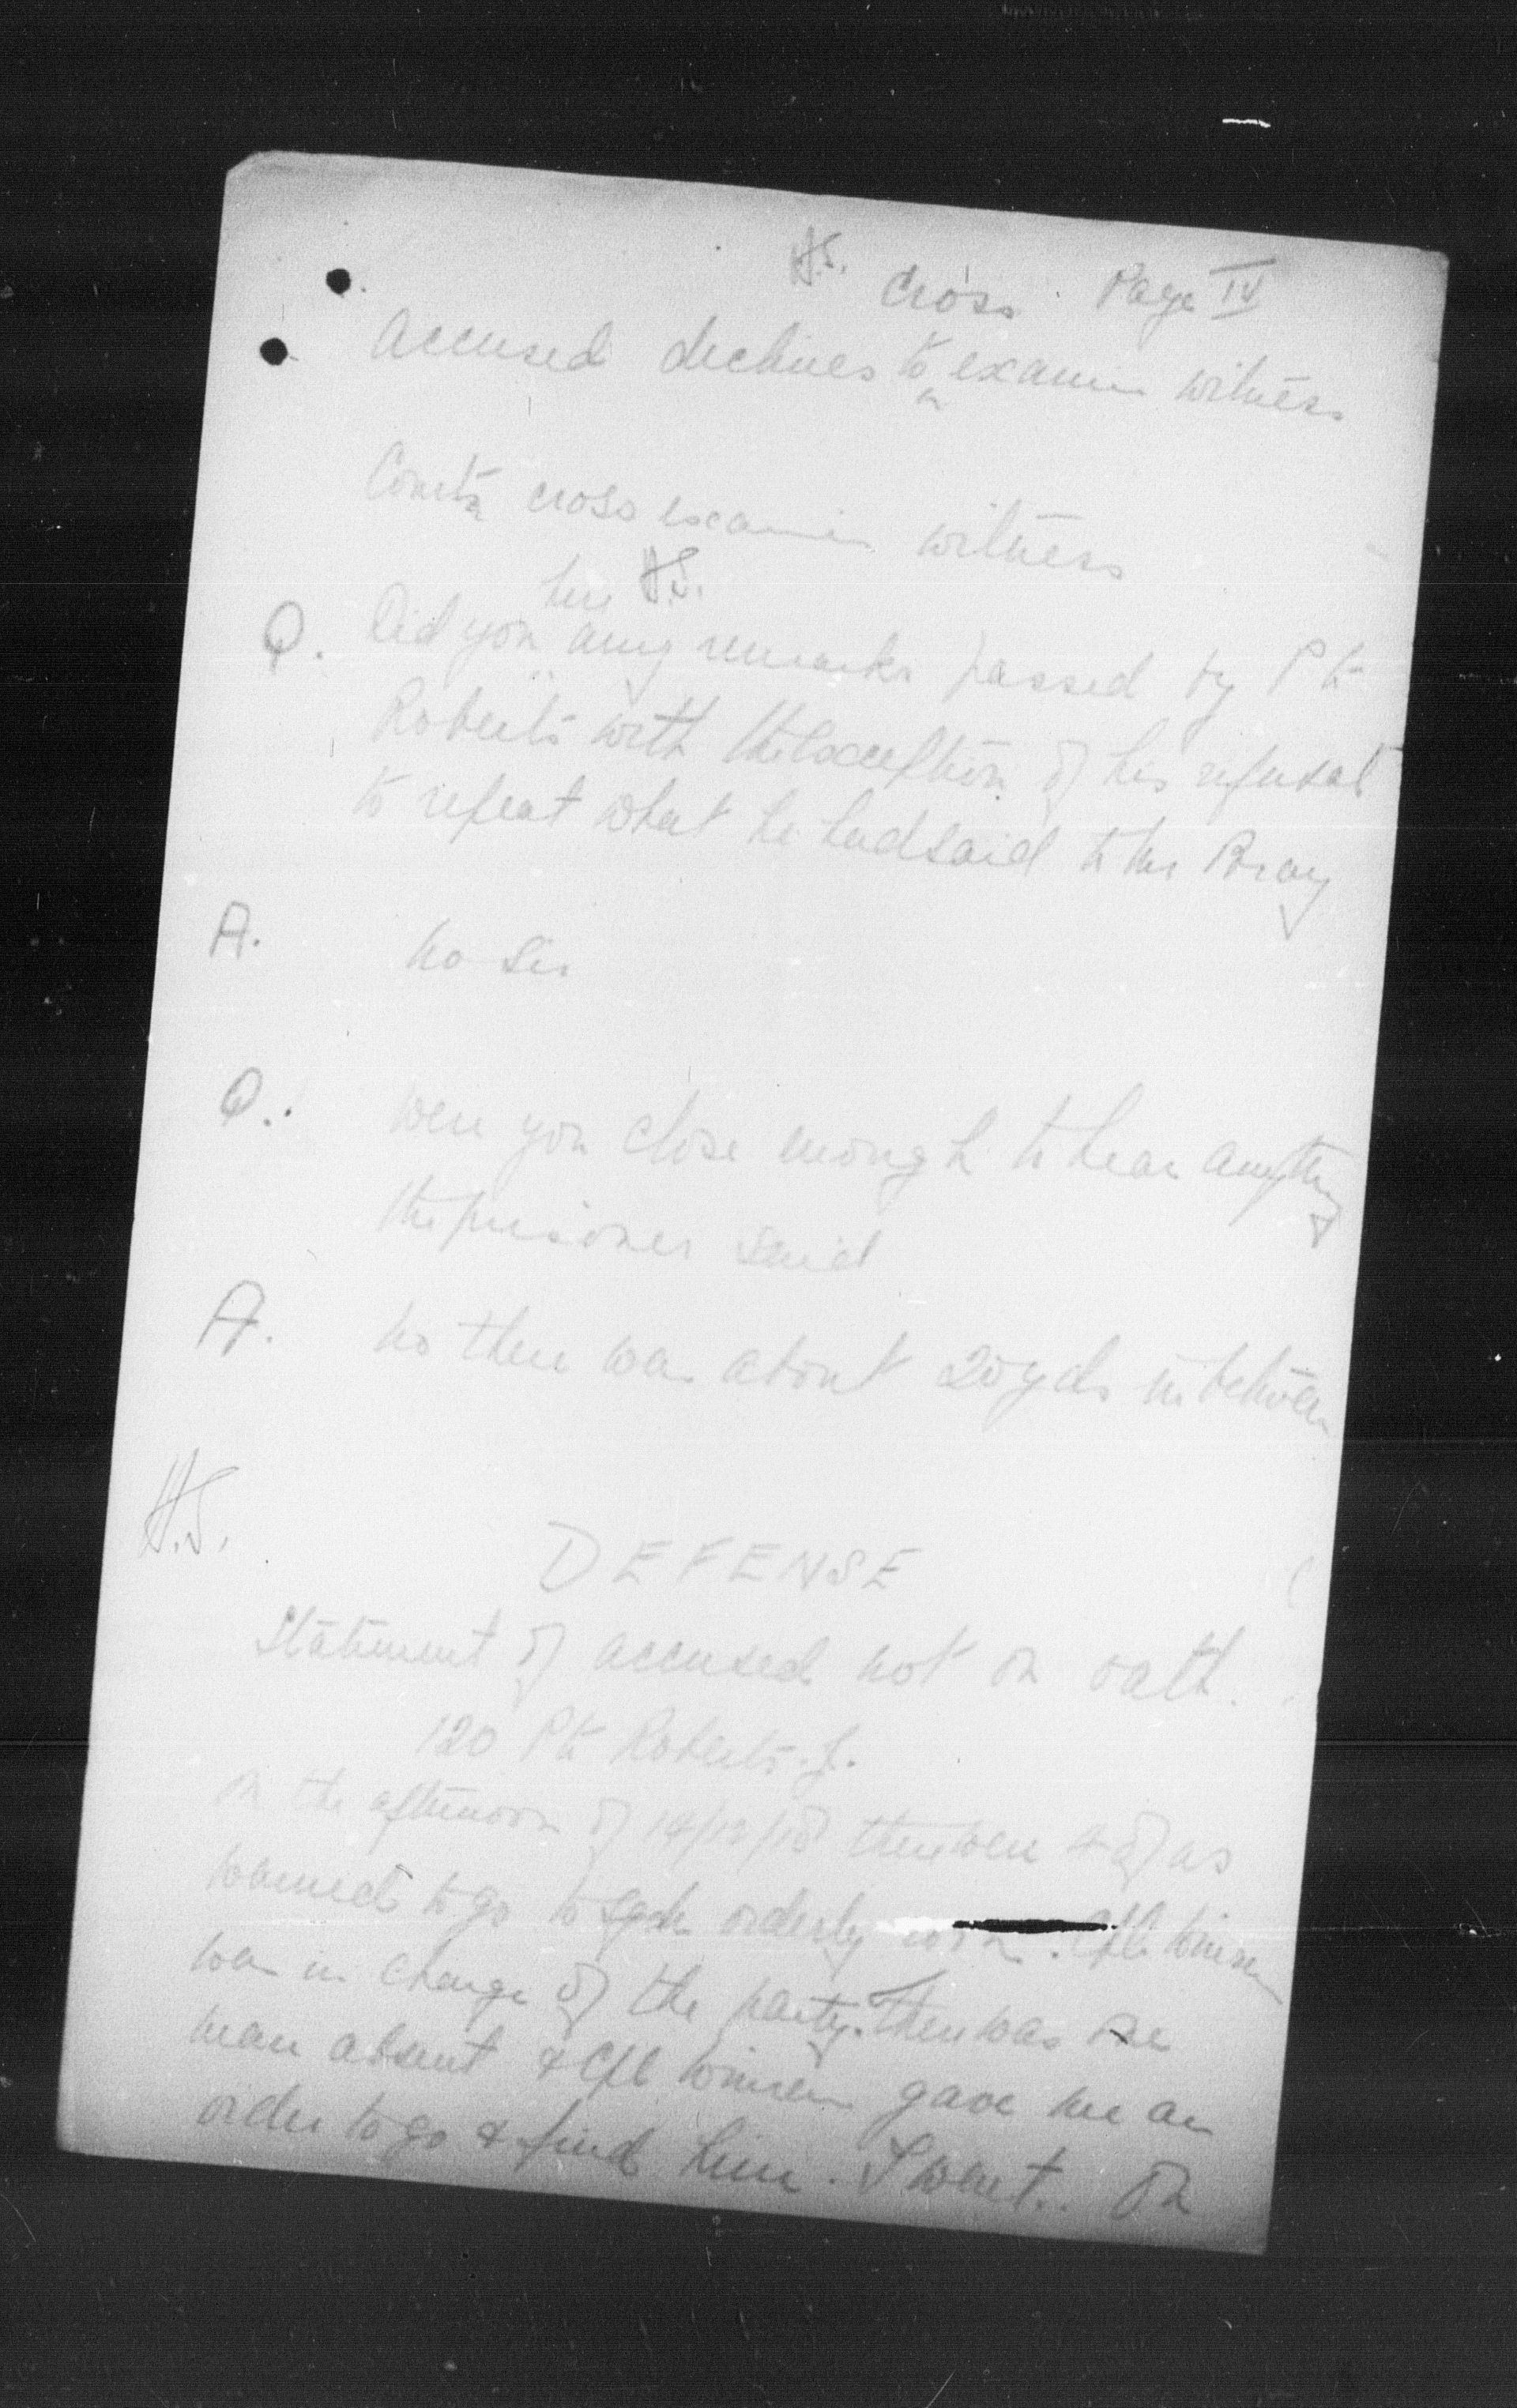 H.S. Cross Page IV
Accused declines to examine witness
Court cross examines witness
H.S.
Q. Did you hear any remarks passed by Pte
Roberts with the exception of his refusal
to repeat what he had said to Mr Bray
A. No Sir
Q. Were you close enough to hear anything
the prisoner said
A. No there was about 20 yds in between
H.S.
DEFENSE
Statement of accused not on oath.
120 Pte Roberts. J.
On the afternoon of 14/12/18 there were 4 of us
warned to go to Sqdn orderly room. Cpl
was in charge of the party. There was one
man absent & Cpl gave me an
order to go & find him. I went.. On